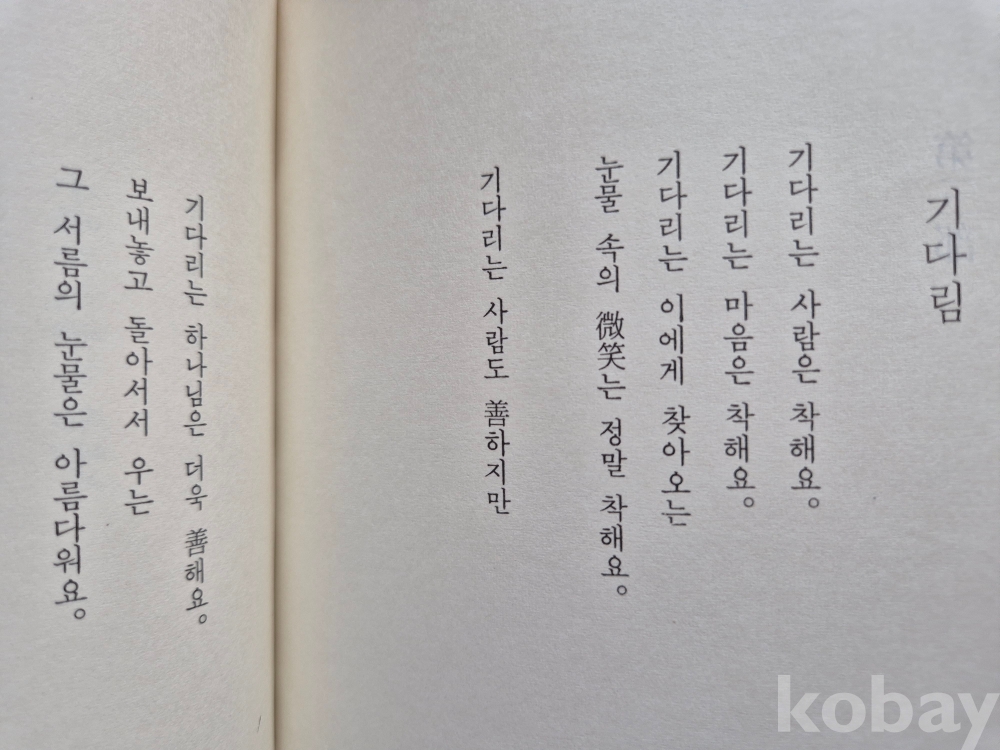 기다림
기다리는 사람은 착해요。
기다리는 마음은 착해요。
기다리는 이에게 찾아오는
눈물 속의 微笑는 정말 착해요。
기다리는 사람도 善하지만
기다리는 하나님은 더욱 善해요。
보내놓고 돌아서서 우는
그 서름의 눈물은 아름다워요。
kobay